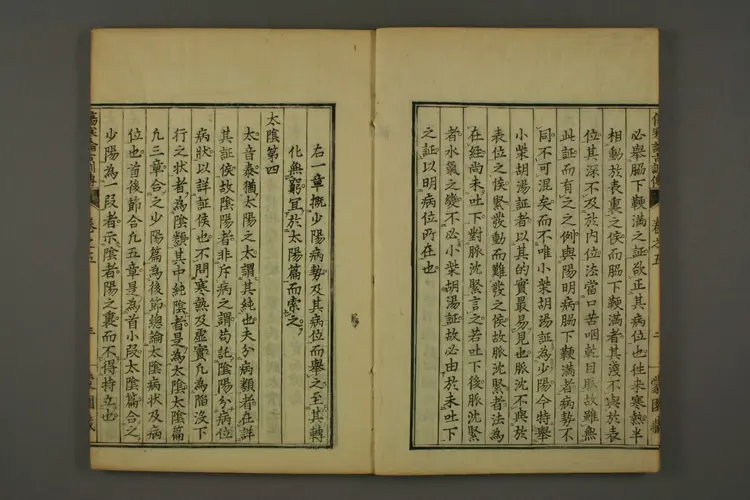 必舉脇下鞕滿之証欲正其病位也往來寒熱半
相動於表裏之侯而脇下鞕滿者其邊不與於表
位其深不及於内位法當口苦咽乾目眩故雖無
此証而有之之例與陽明病脇下鞕滿者病勢不
同不可混矣而不唯小柴胡湯証為少陽今特舉
小柴胡湯証者以其的實最易見也脈沈不與於
表位之侯緊發動而難發之侯故脈沈緊者法為
在經尚未吐下對脈沈緊言之若吐下後脈沈緊
者水氣之變不必小柴胡湯証故必由於未吐下
之証以明病位所在也
右一章概少陽病勢及其病位而舉之至其轉
化無窮宜於太陽篇而索之
太陰第四
太音泰猶太陽之太謂其純也夫分病類者在詳
其証侯故陰陽者非斥病之謂茍託陰陽分病位
病狀以詳証侯也不問寒熱及虛實凡為陷沒下
行之狀者為陰類其中純陰者是為太陰太陰篇
凡三章合之少陽篇為後節總論太陰病狀及病
位也首後節合凡五章是為首小段太陰篇合之
少陽為一段者示陰者陽之裏而不得特立也
卷之五